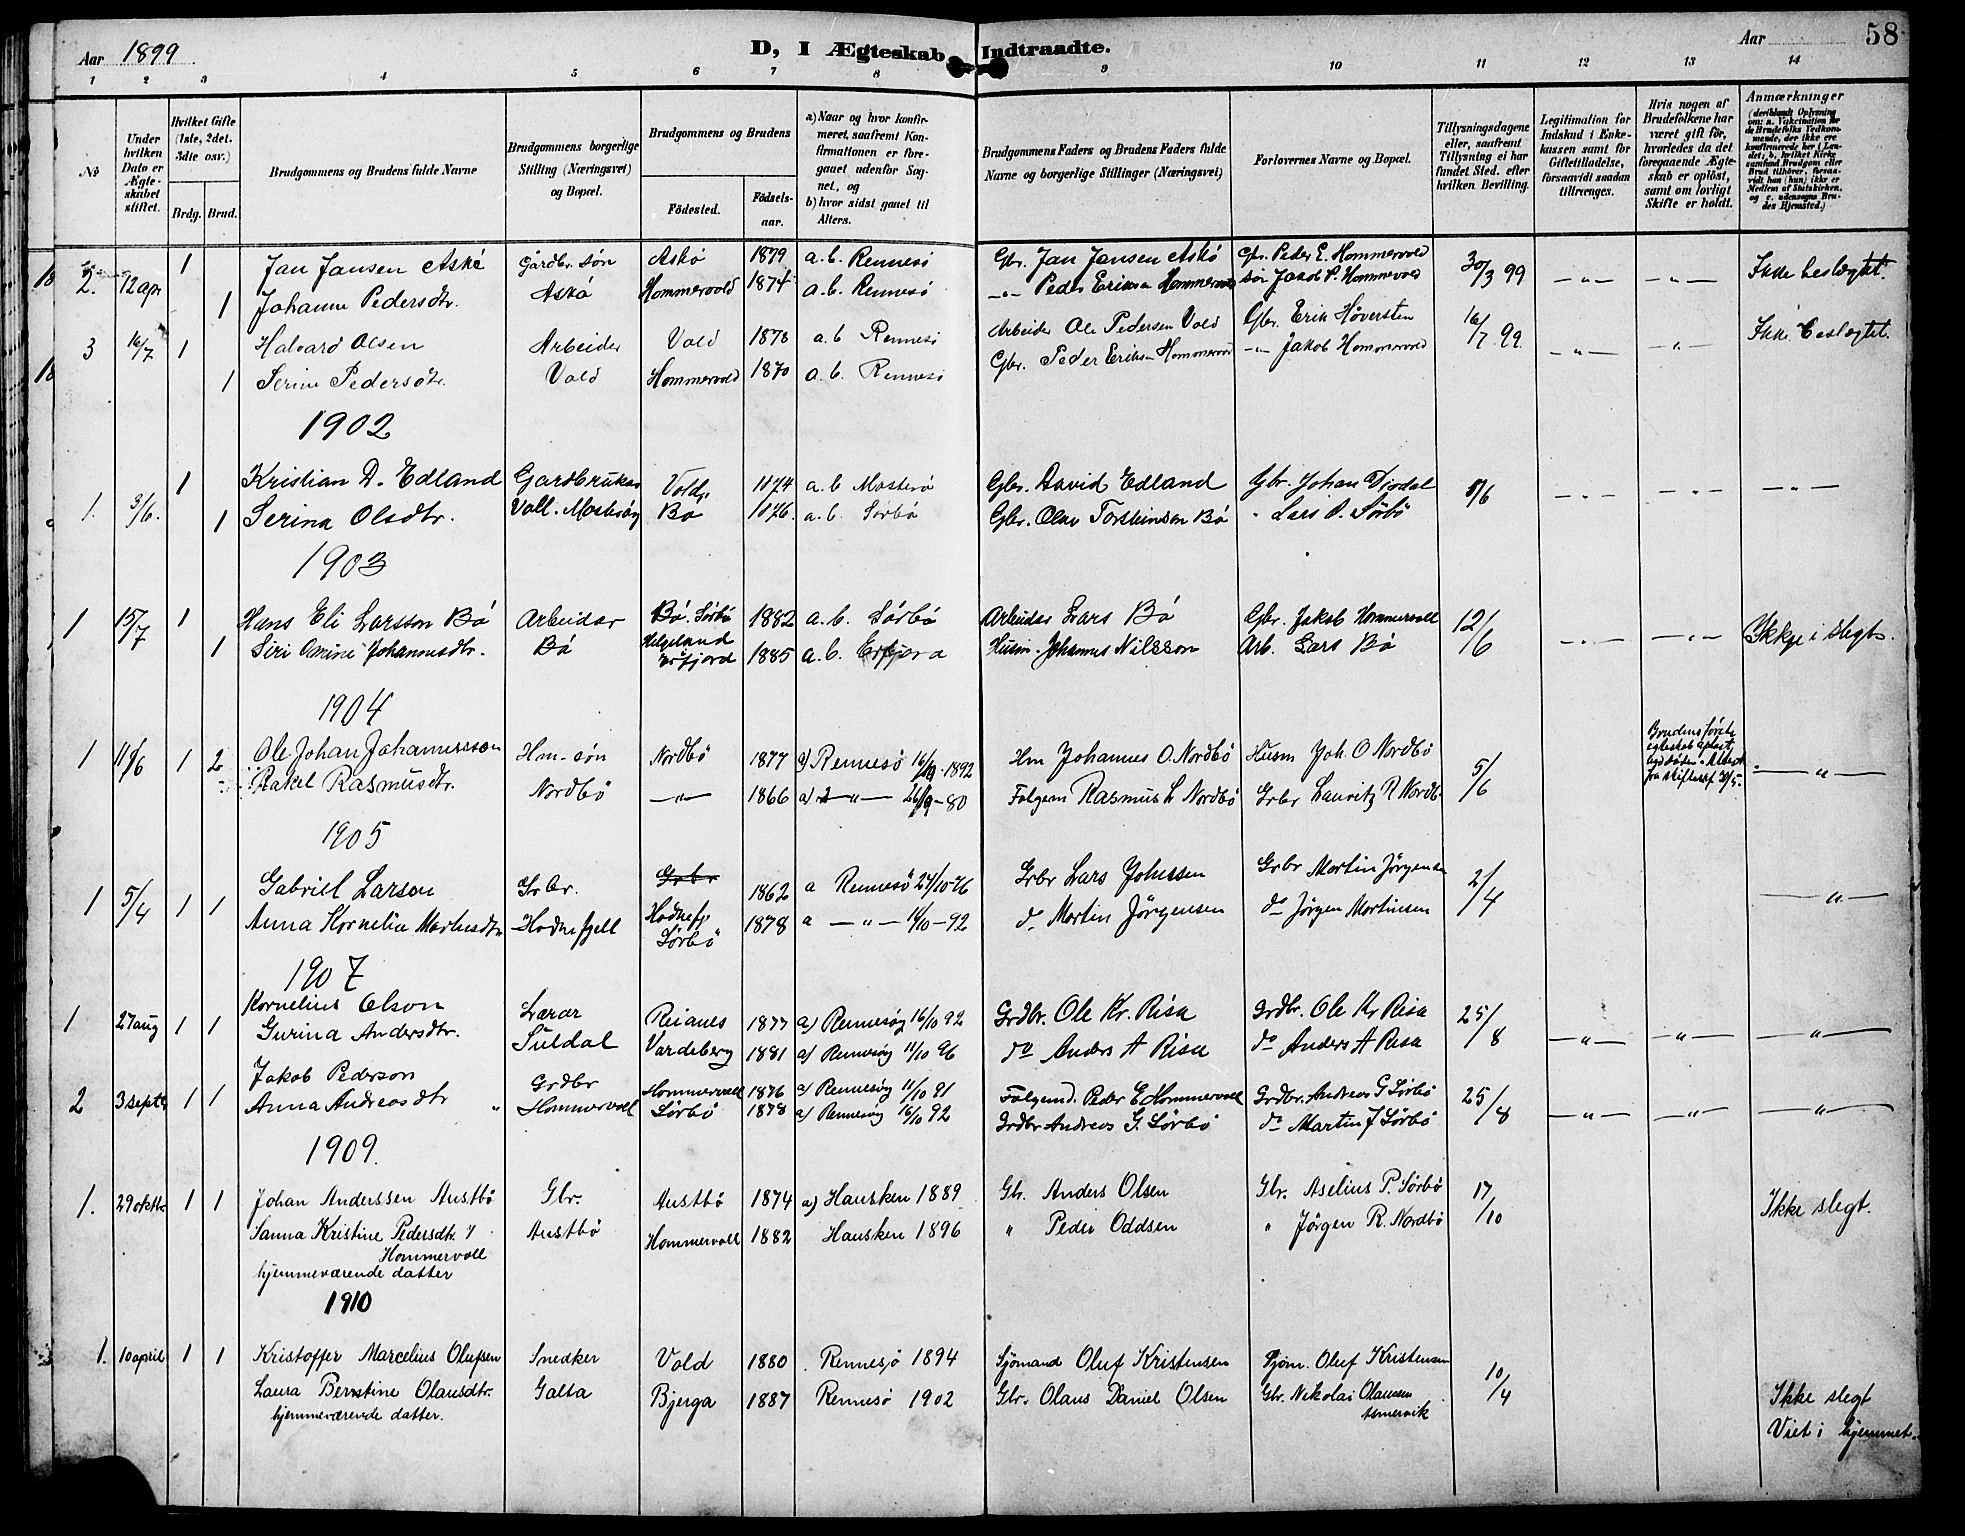 Aar 1899
D, I Ægteskab Indtraadte.
Aar 58
1 2 3 4 5 6 7 8 9 10 11 12 13 14
No
Under hvilken Dato er Ægteskabet stiftet.
Hvilket Gifte (1ste, 2det. 3die osv.)
Brdg. Brud.
Brudgommens og Brudens fulde Navne
Brudgommens borgerlige Stilling (Næringsvei) og Bopæl.
Brudgommens og Brudens
Fødested. Fødselsaar.
a) Naar og hvor konfirmeret, saafremt Konfirmationen er foregaaet udenfor Sognet, og
b) hvor sidst gaaet til Alters.
Brudgommens Faders og Brudens Faders fulde Navne og borgerlige Stillinger (Næringsvei)
Forlovernes Navne og Bopæl.
Tillysningsdagene eller, saafremt Tillysning ei har fundet Sted. efter hvilken Bevilling.
Legitimation for Indskud i Enkekassen samt for Giftetilladelse, forsaavidt saadan tiltrænges.
Hvis nogen af Brudefolkene har været gift før, hvorledes da det foregaaende Ægteskab er opløst, samt om lovligt Skifte er holdt.
Anmærkninger (deriblandt Oplysning om: a. Vakcination for de Brudefolks Vedkommende, der ikke ere konfirmerede her i Landet, b. hvilket Kirkesamfund Brudgom eller Brud tilhører, forsaavidt han (hun) ikke er Medlem af Statskirken, og c. udensogns Brudes Hjemsted.)
2. 12 apr 1 Jan Jansen Askø Gårdbr. søn Askø 1879 a. b. Rennesø Gbr. Jan Jansen Askø Gbr. Peder E. Hommervold 30/3 99 —"— —"— Ikke beslægtet.
1 Johanne Pedersdtr. Askø Hommervold 1874 a. b. Rennesø —"— Peder Eriksen Hommervold søn Jakob P. Hommervold
3 16/7 1 Halvard Olsen Arbeider Vold 1878 a. b Rennesø Arbeider Ole Pedersen Vold Gbr. Erik Høversten 16/7 99. —"— —"— Ikke beslægtet.
1 Serine Pedersdtr. Vold Hommervold 1870 a. b. Rennesø Gbr. Peder Eriksen Hommervold —"— Jakob Hommervold
1902
1. 3/6. 1 Kristian D. Edland Gardbrukar Voll. 1874 a. b Mosterø Gbr. David Edland Gbr. Johan Dysdal 1/6 —"— —"— —"—
1 Serina Olsdtr. Voll. Mosterøy Bø 1876. a. b. Sørbø Gbr. Olav Torsteinsen Bø " Lars P. Sørbø
1903
1 15/7 1 Hans Eli Larsson Bø Arbeidar Bø. Sørbø 1882 a. b. Sørbø Arbeidar Lars Bø Gbr. Jakob Hommervoll 12/6 —"— —"— Ikkje i slegt.
1 Siri Omine Johannesdtr. Bø Helgeland Erfjord 1885 a. b. Erfjord Husm. Johannes Nilsson Arb. Lars Bø
1904
1 11/6 1 2 Ole Johan Johannesson Hm. søn Nordbø 1877 a) Rennesø 16/10-1892 Hm Johannes O. Nordbø Husm Joh. O Nordbø 5/6 Brudens første egteskab opløst ved døden. —"—
Rakel Rasmusdtr. Nordbø —"— 1866 a) —"— 26/9-80 Følgem Rasmus L Nordbø Grbr Lauritz R Nordb
1905
1 5/4 1 1 Gabriel Larson Grbr. Grbr 1862 a Rennesø 24/10-76 Grbr Lars Johnsen Grbr Martin Jörgensen 2/4 —"—
Anna Kornelia Martinsdtr Hodnefjell Hodnefj. Sørbø 1878 a —"— 16/10-92 do Martin Jörgensen do Jörgen Martinsen
1907
1 27 aug 1 1 Kornelius Olson Lærar Reianes 1877 a) Rennesøy 16/10 92 Grdbr. Ole Kr. Risa Grdbr. Ole Kr Risa 25/8 —"— —"— —"—
Gurina Andersdtr. Suldal Vardeberg 1881 a) Rennesøy 11/10 96 do Anders A Risa do Anders A Risa
2 3 septb 1 1 Jakob Pederson Grdbr Hommervoll 1876 a) Rennesøy 11/10 91 Følgemd. Peder E Hommervoll Grdbr. Andreas G Sørbø 25/8 —"— —"— —"—
Anna Andreasdtr " Hommervoll Sørbø 1878 a) Rennesøy 16/10 92 Grdbr Andreas G. Sørbø do Martin J Sørbø
1909.
1. 29 oktbr 1 1 Johan Anderssen Austbø Gbr. Austbø 1874 a) Hausken 1889 Gb. Anders Olsen Gbr. Aselius P. Sørbø 17/10 Ikke slegt.
Sanna Kristine Pedersdtr. Austbø Hommervoll 1882 Hausken 1896 " Peder Oddsen " Jörgen R. Nordbø
Hommervoll
hjemmeværende datter
1910
1. 10 april 1 1 Kristoffer Marcelius Olufsen Snedker Vold 1880 Rennesø 1894 Sjömand Oluf Kristensen Sjøm. Oluf Kristensen 10/4
Laura Berntine Olausdtr. Galta Bjerga 1887 Rennesø 1902 Gbr. Olaus Daniel Olsen Gbr. Nikolai Olaussen Ikke slegt
hjemmeværende datter. Asmervik Viet i hjemmet.